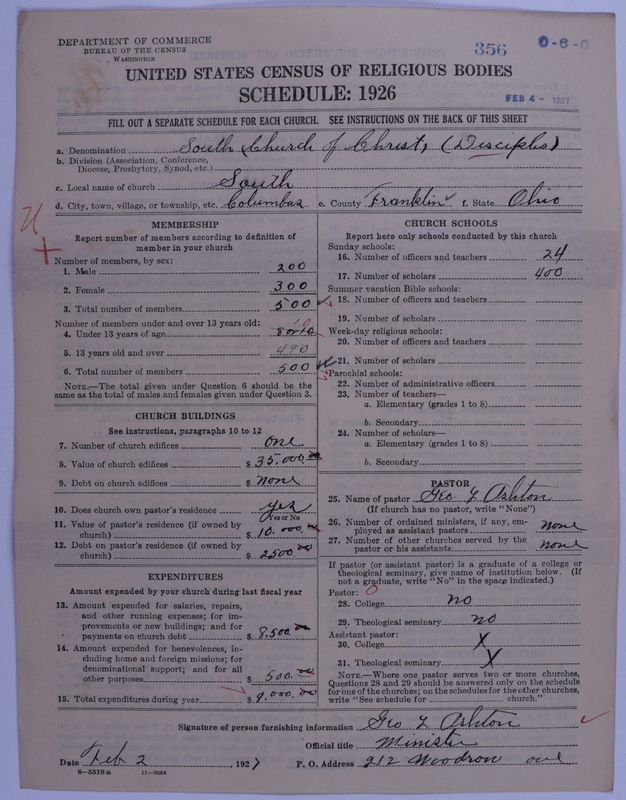 DEPARTMENT OF COMMERCE
BUREAU OF THE CENSUS
WASHINGTON
356
0-6-0
UNITED STATES CENSUS OF RELIGIOUS BODIES
SCHEDULE: 1926
FEB 4 - 1927
FILL OUT A SEPARATE SCHEDULE FOR EACH CHURCH. SEE INSTRUCTIONS ON THE BACK OF THIS SHEET
a. Denomination South Church of Christ, (Disciples)
b. Division (Association, Conference,
Diocese, Presbytery, Synod, etc.)
c. Local name of church South
d. City, town, village, or township, etc. Columbus e. County Franklin f. State Ohio
MEMBERSHIP
Report number of members according to definition of
member in your church
Number of members, by sex:
1. Male 200
2. Female 300
3. Total number of members 500
Number of members under and over 13 years old:
10
4. Under 13 years of age 8 or 10
5. 13 years old and over 490
6. Total number of members 500
NOTE.—The total given under Question 6 should be
same as the total of males and females given under Question 3.
CHURCH BUILDINGS
See instructions, paragraphs 10 to 12
7. Number of church edifices one
8. Value of church edifices $ 35.000.00
9. Debt on church edifices $ none
10. Does church own pastor's residence? yes
Yes or No
11. Value of pastor's residence (if owned by
church) $ 10.000.00
12. Debt on pastor's residence (if owned by
church) $ 2500.00
EXPENDITURES
Amount expended by your church during last fiscal year
13. Amount expended for salaries, repairs,
and other running expenses; for im-
provements or new buildings; and for
payments on church debt $ 8,500.00
14. Amount expended for benevolences, in-
cluding home and foreign missions; for
denominational support; and for all
other purposes $ 500.00
15. Total expenditures during year $ 9.000.00
CHURCH SCHOOLS
Report here only schools conducted by this church
Sunday schools:
16. Number of officers and teachers 24
17. Number of scholars 400
Summer vacation Bible schools:
18. Number of officers and teachers
19. Number of scholars
Week-day religious schools:
20. Number of officers and teachers
21. Number of scholars
Parochial schools:
22. Number of administrative officers
23. Number of teachers—
a. Elementary (grades 1 to 8)
b. Secondary
24. Number of scholars—
a. Elementary (grades 1 to 8)
b. Secondary
PASTOR
25. Name of pastor Geo T Ashton
(If church has no pastor, write "None")
26. Number of ordained ministers, if any, em-
ployed as assistant pastors none
27. Number of other churches served by the
pastor or his assistants none
If pastor (or assistant pastor) is a graduate of a college or
theological seminary, give name of institution below. (If
not a graduate, write "No" in the space indicated.)
Pastor: 0
28. College no
29. Theological seminary no
Assistant pastor:
30. College X
31. Theological seminary X
NOTE.—Where one pastor serves two or more churches,
Questions 28 and 29 should be answered only on the schedule
for one of the churches; on the schedules for the other churches,
write "See schedule for church."
Signature of person furnishing information Geo T Ashton
Official title Minister
Date Feb 2, 1927 P. O. Address 212 Woodrow ave
8—5518 a 11—9034